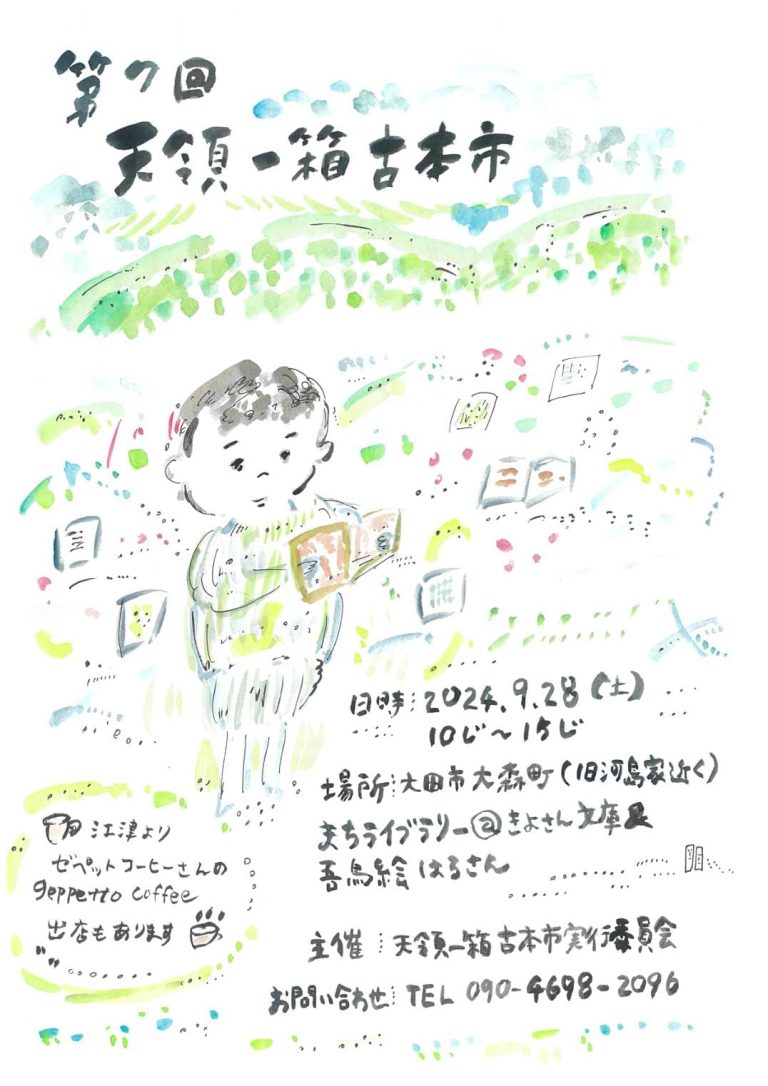 第7回
天領一箱古本市
日時:2024.9.28(土)
10じ〜15じ
場所:大田市大森町(旧河島家近く)
まちライブラリー@きよさん文庫
吾鳥絵はるさん
江津より
ゼペットコーヒーさんの
geppetto coffee
出店もあります
主催:天領一箱古本市実行委員会
お問い合わせ:TEL 090-4698-2096